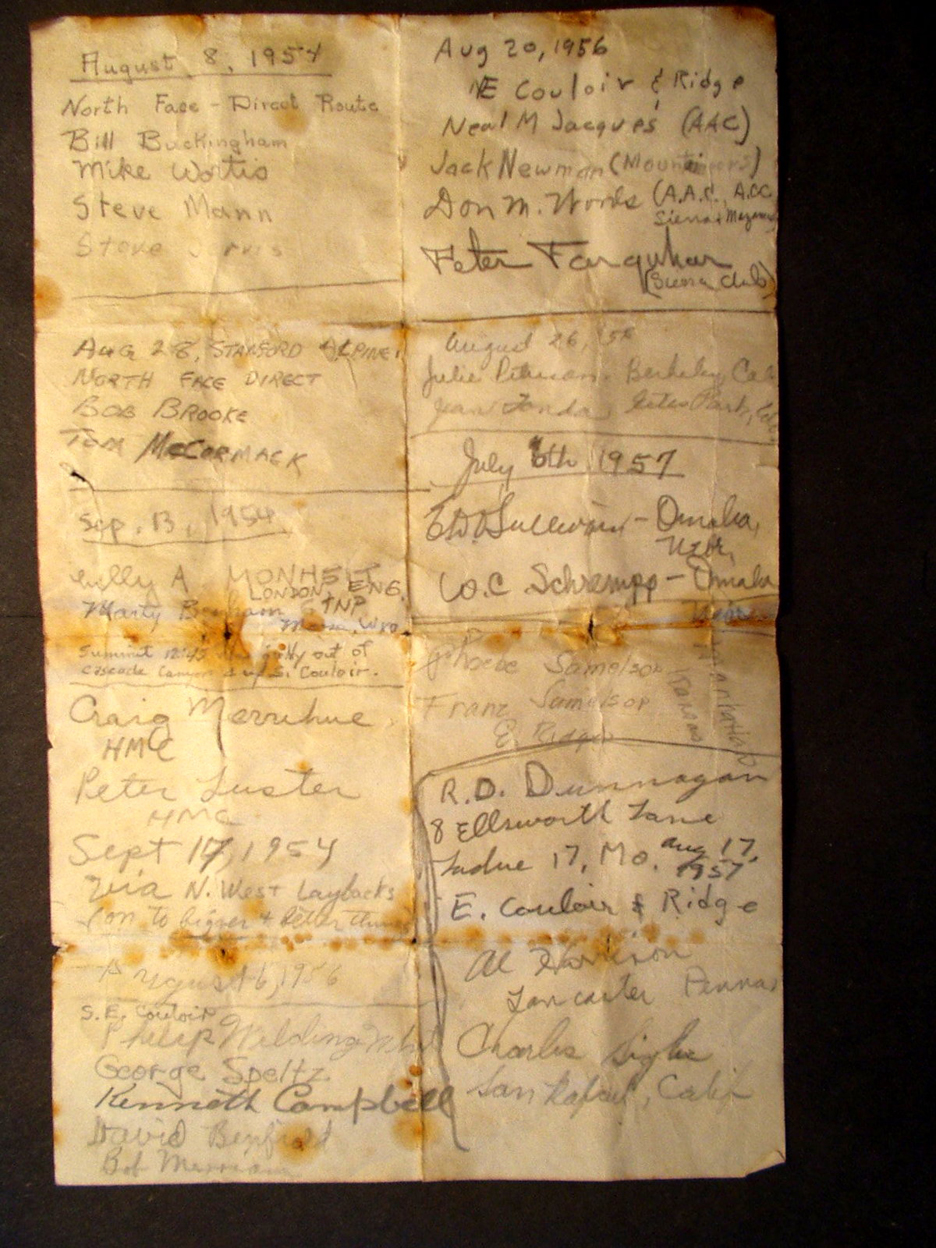 August 8, 1954
North Face - Direct Route
Bill Buckingham
Mike Wortis
Steve Mann
Steve Jervis
Aug 28, STANFORD ALPINE
NORTH FACE DIRECT
BOB BROOKE
TOM McCORMACK
Sep. 13, 1954
A MONHEIT
LONDON, ENG.
Marty Benham GTNP
Moose, Wyo
Summit 12:45 out of
Cascade Canyon & up S. Couloir.
Craig Merrihue
HMC
Peter Luster
HMC
Sept 17, 1954
Via N. West Laybacks
& on to bigger & better things
August 6, 1956
S.E. Couloir
Philip Wilding
George Speltz
Kenneth Campbell
David Benfield
Bob Merriam
Aug 20, 1956
NE Couloir & Ridge
Neal M Jacques (AAC)
Jack Newman (Mountaineers)
Don M. Woods (A.A.C., A.C.C.
Sierra & Mazamas
Peter Farquhar
(Sierra Club)
August 26, 156
Julie Peterson, Berkeley Cal
Jean Fonda Estes Park, Colo
July 6th, 1957
ED Sullivan - Omaha,
Nebr.
W.C Schrempp - Omaha
Phoebe Samelson
Franz Samelson
E. Ridge
Manhattan
Kansas
R.D. Dunnagan
8 Ellsworth Lane
Ladue 17, Mo. Aug 17,
1957
E. Couloir & Ridge
Al
Lancaster Penna
Charles
San Rafael, Calif